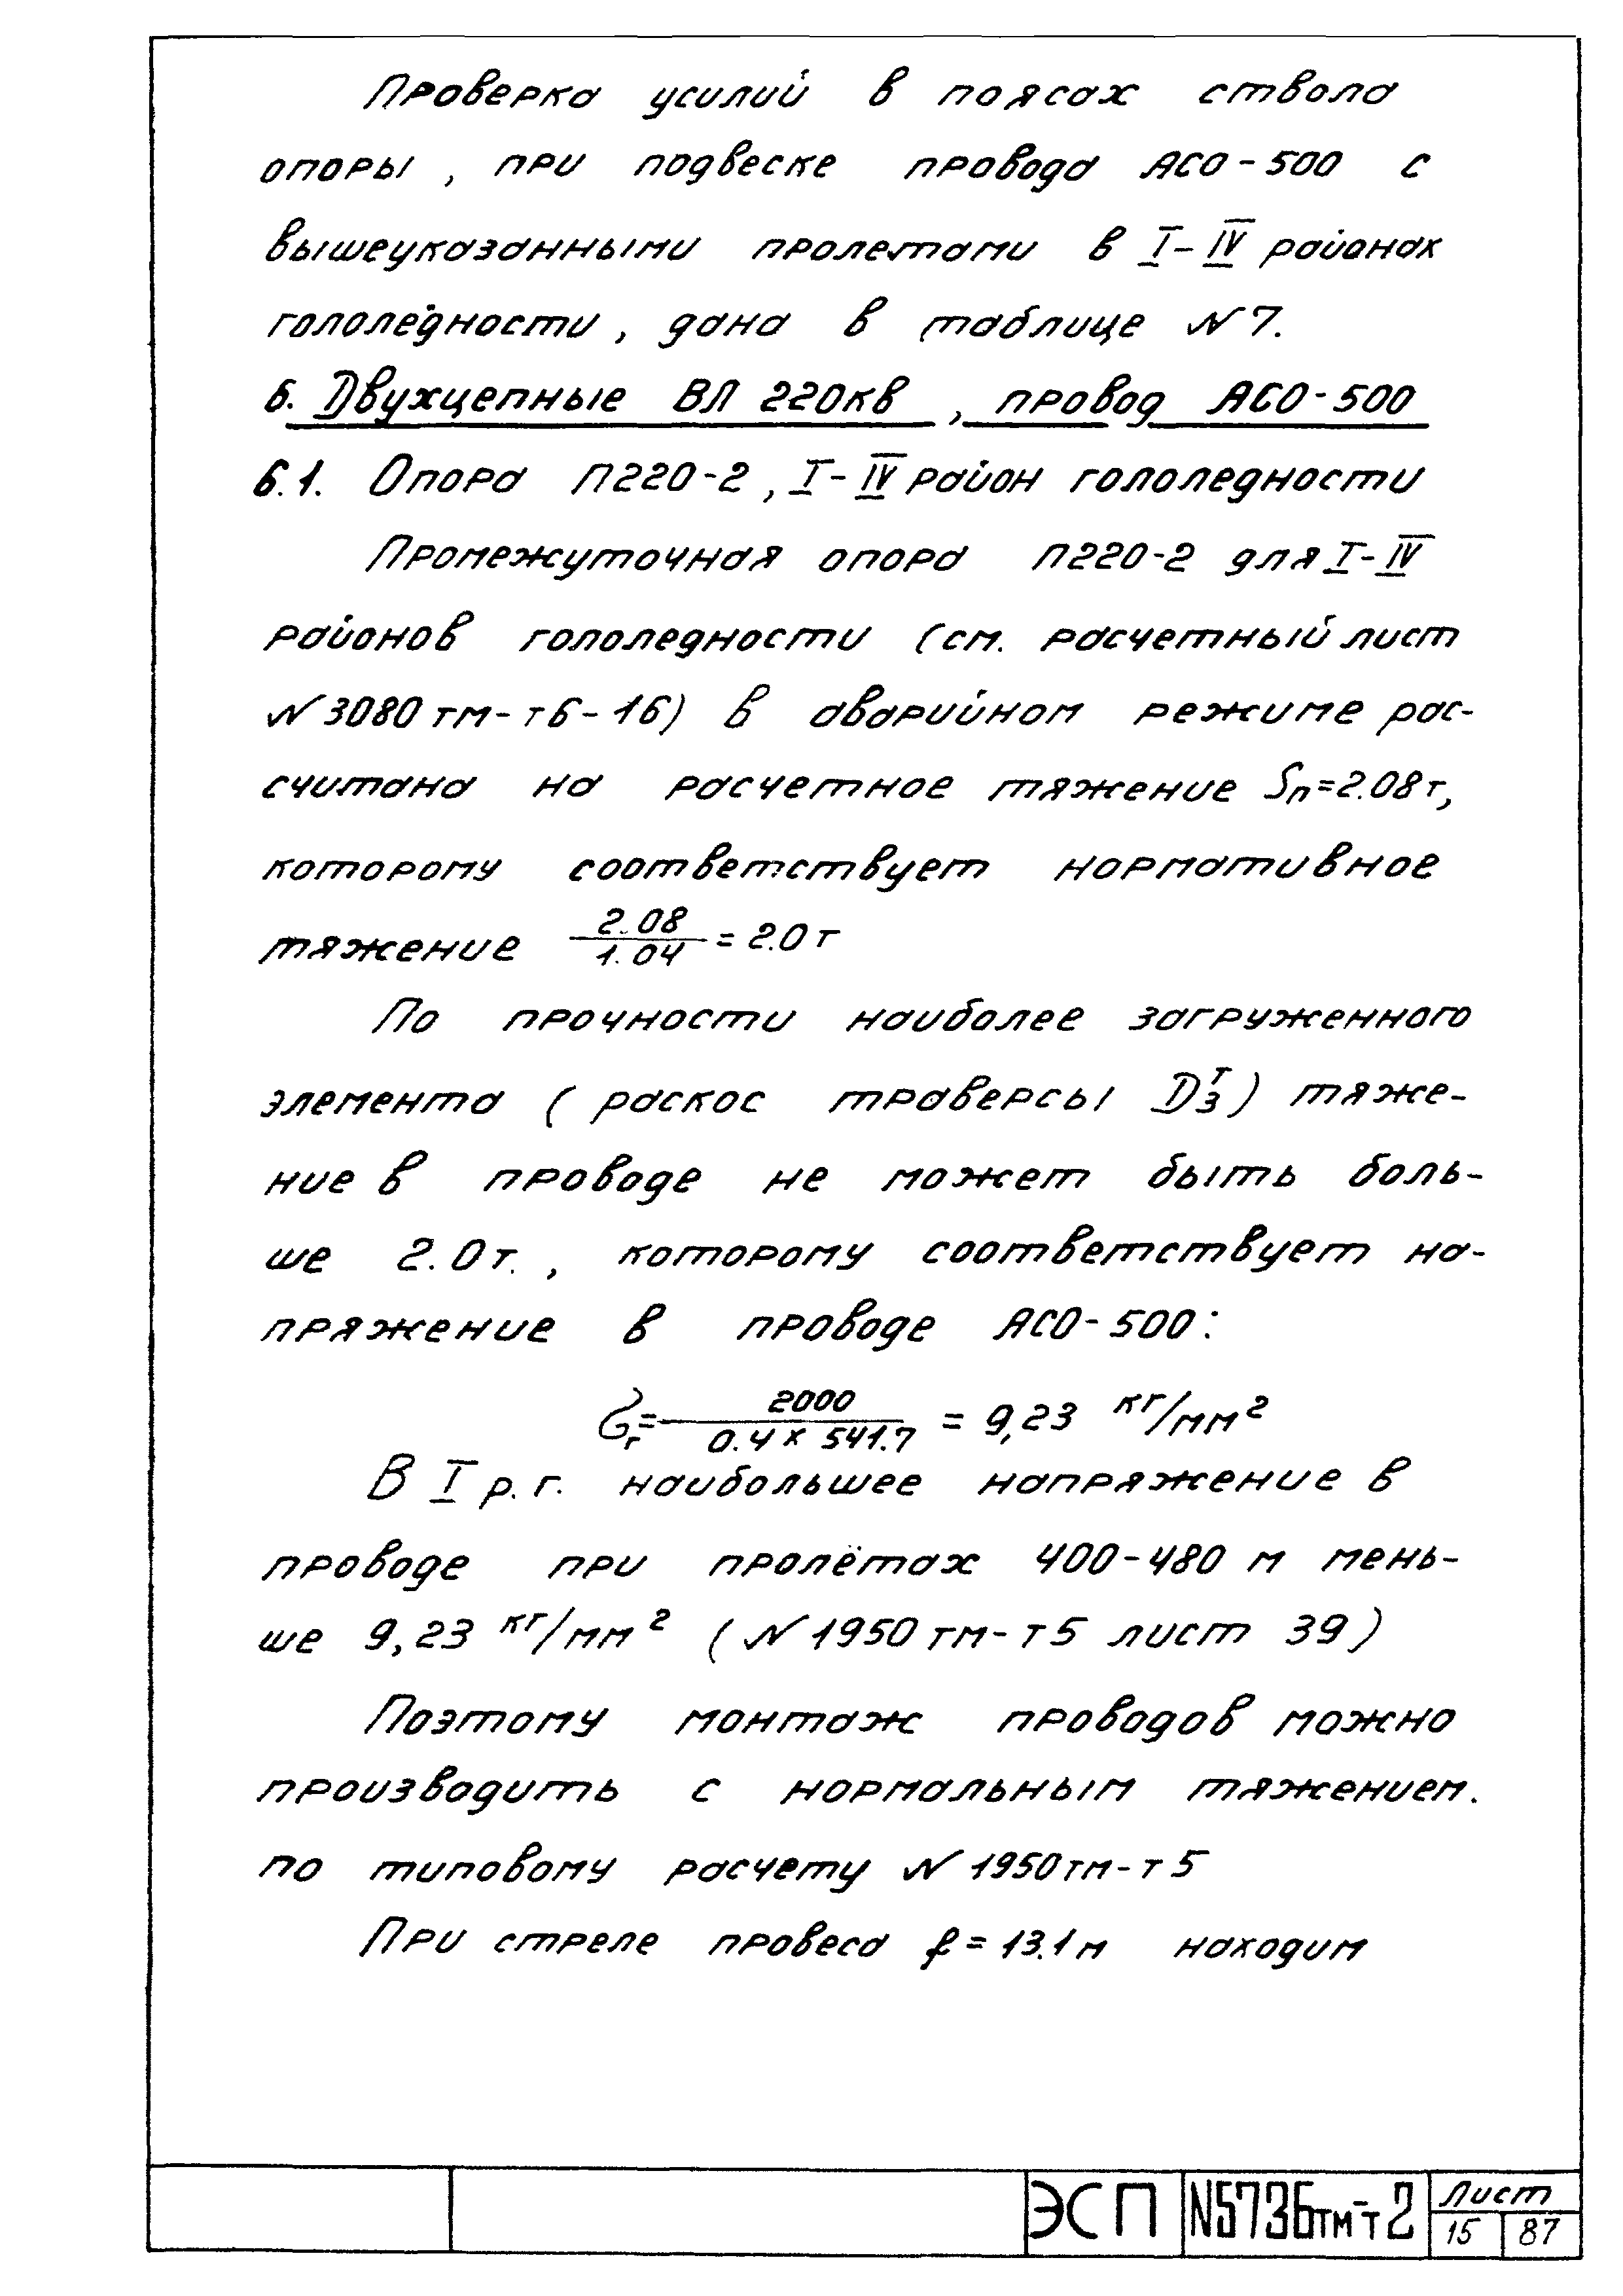 Проверка усилий в поясах ствола
опоры, при подвеске провода АСО-500 с
вышеуказанными пролетами в I-IV районах
гололедности, дана в таблице N 7.
6. Двухцепные ВЛ 220кв, провод АСО-500
6.1. Опора П220-2, I-IV район гололедности
Промежуточная опора П220-2 для I-IV
районов гололедности (см. расчетный лист
N 3080тм-т6-16) в аварийном режиме рас-
считана на расчетное тяжение Sп=2.08т,
которому соответствует нормативное
тяжение 2.08/1.04 = 2.0 т
По прочности наиболее загруженного
элемента (раскос траверсы D₃ᵀ) тяже-
ние в проводе не может быть боль-
ше 2.0т., которому соответствует на-
пряжение в проводе АСО-500:
Gг = 2000/0.4 x 541.7 = 9,23 кг/мм²
В I р.г. наибольшее напряжение в
проводе при пролётах 400-480 м мень-
ше 9,23 кг/мм² (N 1950тм-т5 лист 39)
Поэтому монтаж проводов можно
производить с нормальным тяжением.
по типовому расчету N 1950тм-т5
При стреле провеса f = 13.1 м находим
ЭСП N5736тм-т2 Лист
15 87